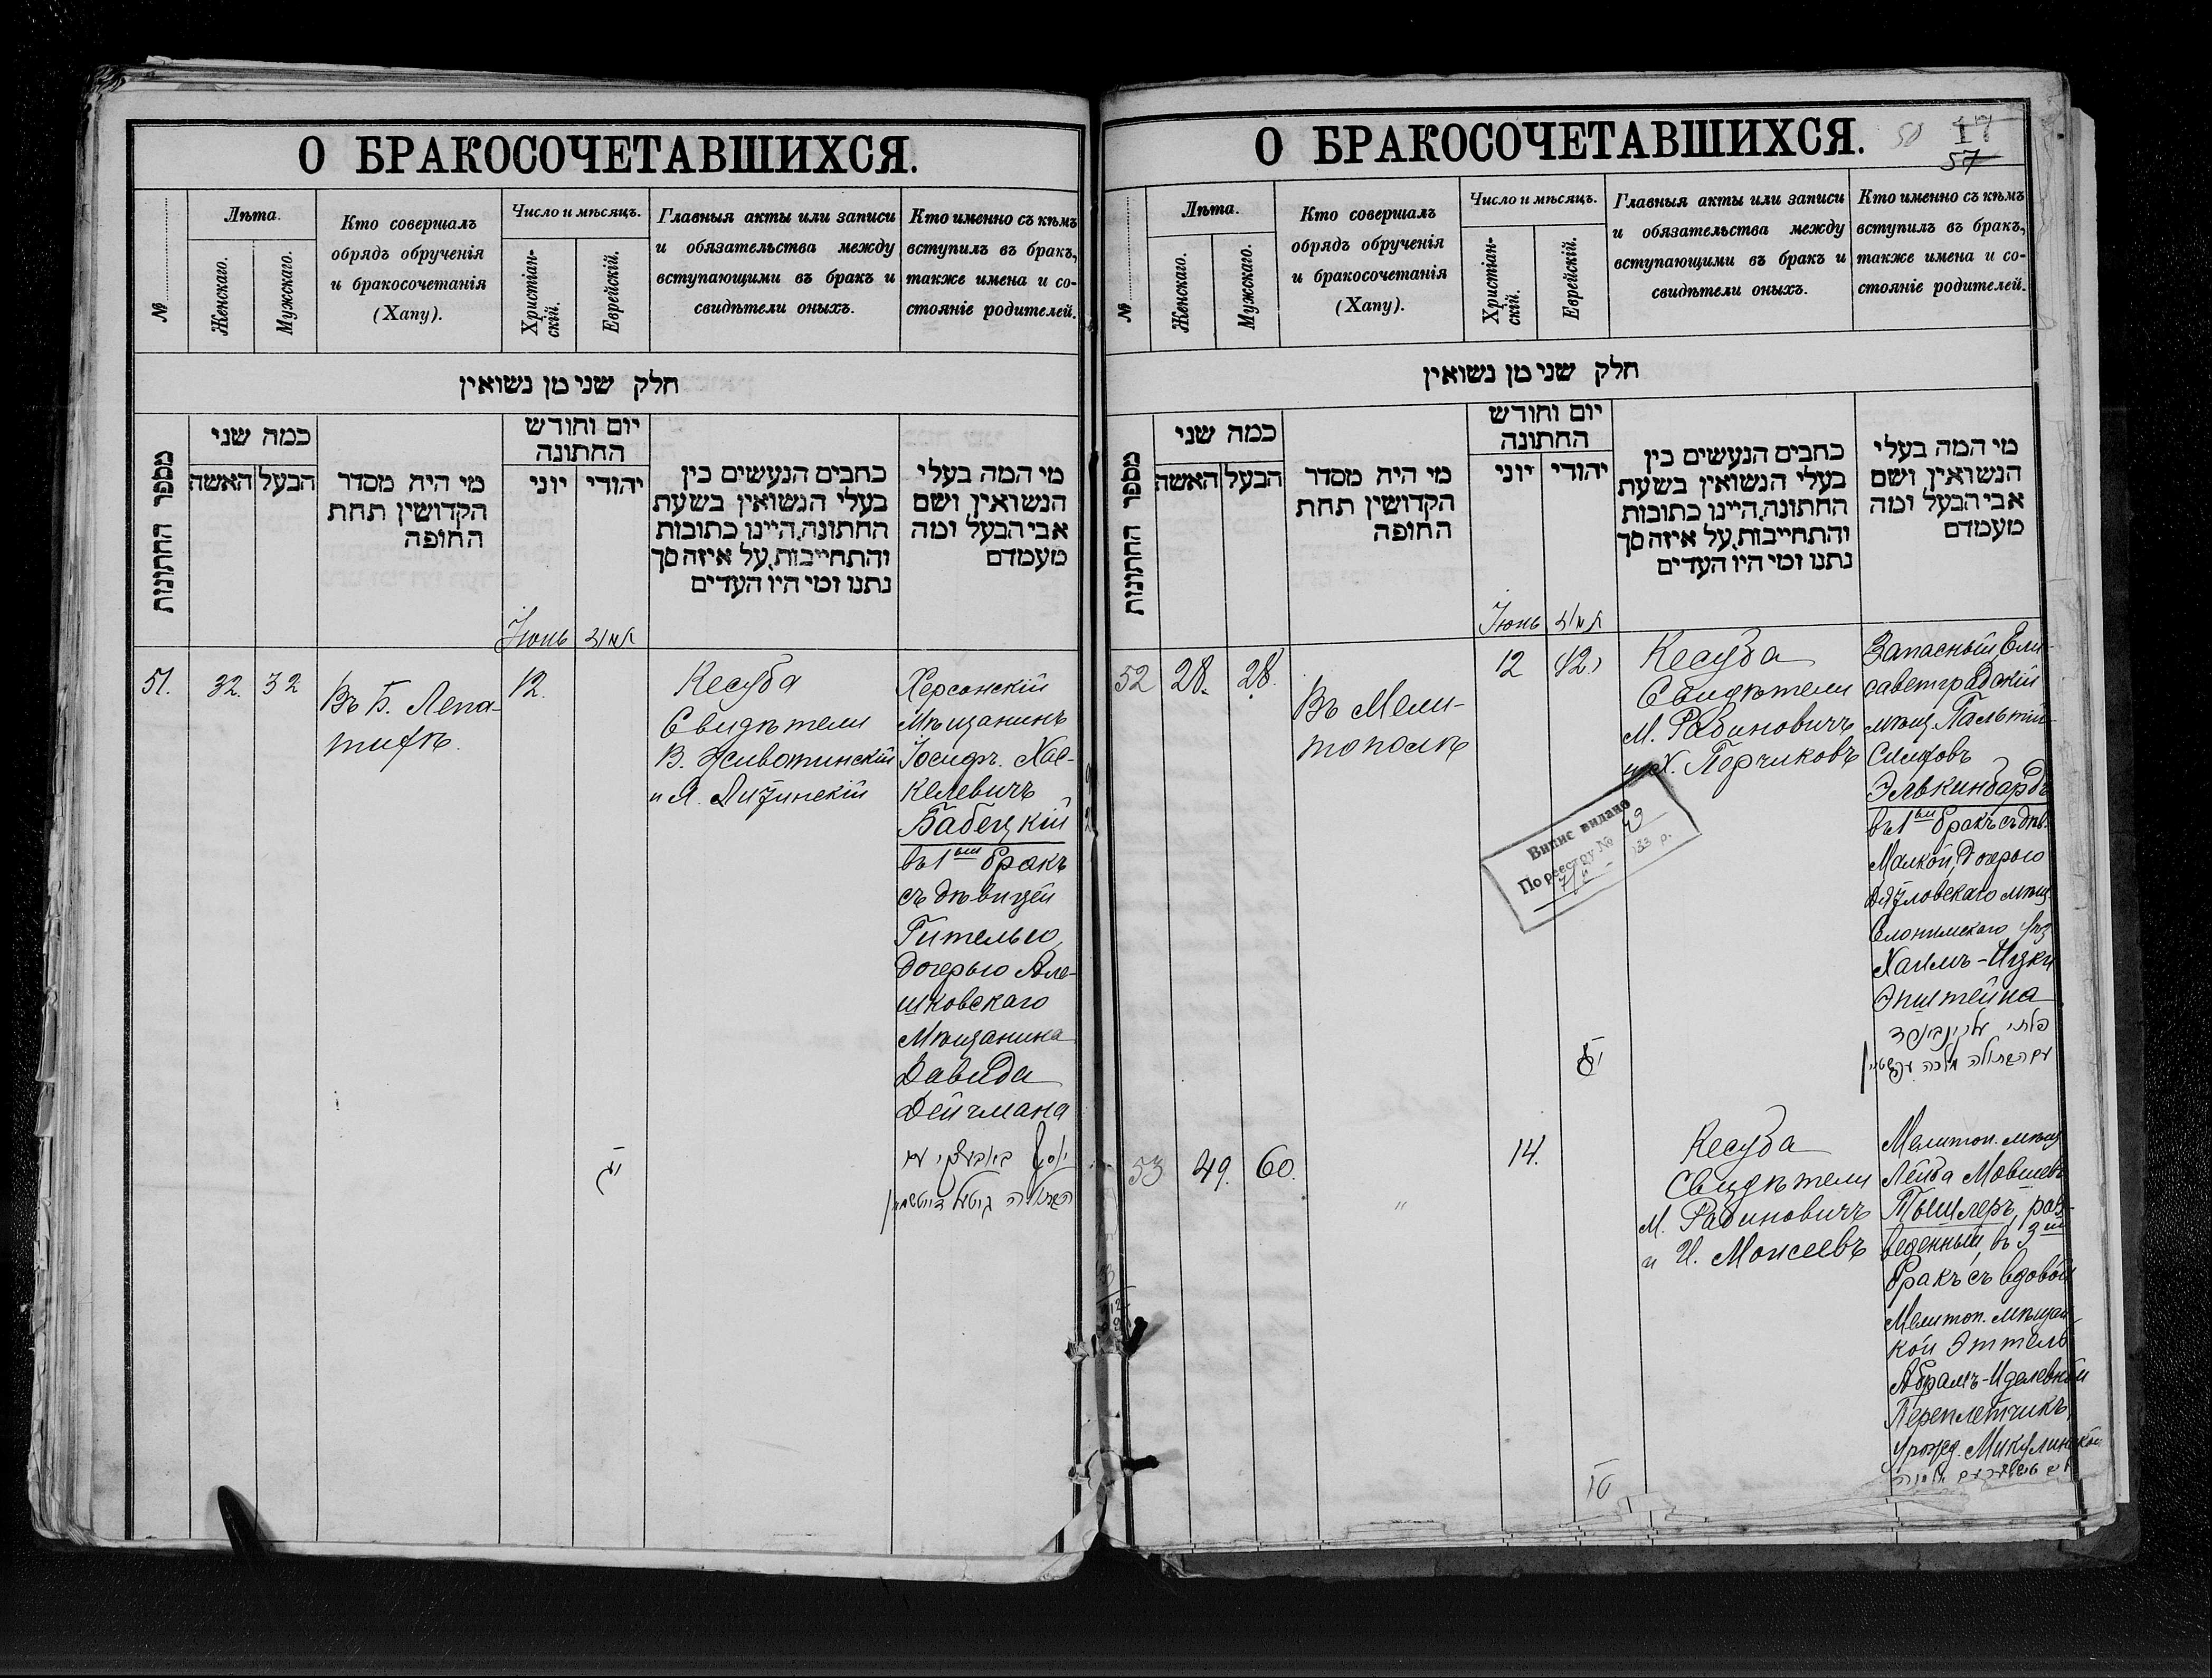 О БРАКОСОЧЕТАВШИХСЯ.
№
Лѣта.
Женскаго.
Мужскаго.
Кто совершалъ
обрядъ обрученія
и бракосочетанія
(Хапу).
Число и мѣсяцъ.
Христіан-
скій.
Еврейскій.
Главныя акты или записи
и обязательства между
вступающими въ бракъ и
свидѣтели оныхъ.
Кто именно съ кѣмъ
вступилъ въ бракъ,
также имена и со-
стояніе родителей.
חלק שני מן נשואין
מספר החתונות
כמה שני
האשה
הבעל
מי היה מסדר
הקדושין תחת
החופה
יום וחודש
החתונה
יוני
יהודי
כתבים הנעשים בין
בעלי הנשואין בשעת
החתונה, היינו כתובות
והתחייבות, על איזה סך
נתנו ומי היו העדים
מי המה בעלי
הנשואין ושם
אבי הבעל ומה
מעמדם
Іюнь
תמוז
51.
32.
32
Въ Б. Лепа-
тихѣ.
12.
יג
Кесуба
Свидѣтели
В. Животинскій
и Я. Лизинскій
Херсонскій
Мѣщанинъ
Іосифъ Хас-
келевичъ
Бабецкій
въ 1ый бракъ
съ дѣвицей
Гителью,
дочерью Але-
шковскаго
Мѣщанина
Давида
Дейчмана
הבתולה גיטל דייטשמאן
О БРАКОСОЧЕТАВШИХСЯ.
50 17
57
№
Лѣта.
Женскаго.
Мужскаго.
Кто совершалъ
обрядъ обрученія
и бракосочетанія
(Хапу).
Число и мѣсяцъ.
Христіан-
скій.
Еврейскій.
Главныя акты или записи
и обязательства между
вступающими въ бракъ и
свидѣтели оныхъ.
Кто именно съ кѣмъ
вступилъ въ бракъ,
также имена и со-
стояніе родителей.
חלק שני מן נשואין
מספר החתונות
כמה שני
האשה
הבעל
מי היה מסדר
הקדושין תחת
החופה
יום וחודש
החתונה
יוני
יהודי
כתבים הנעשים בין
בעלי הנשואין בשעת
החתונה, היינו כתובות
והתחייבות, על איזה סך
נתנו ומי היו העדים
מי המה בעלי
הנשואין ושם
אבי הבעל ומה
מעמדם
Іюнь
תמוז
52
28.
28.
Въ Мели-
тополѣ
12
Кесуба
Свидѣтели
М. Рабиновичъ
и Х. Перчиковъ
Випис видано
По реестру №
Запасный Ели-
саветградскій
мѣщ. Пальтій
Элькинбардъ
въ 1ый бракъ съ дѣв.
Малкой, дочерью
Дятловскаго мѣщ.
Слонимскаго уѣз.
Хаимъ-Ицки
Эпштейна
עם הבתולה מלכה עפשטיין
53
49.
60.
"
14.
Кесуба
Свидѣтели
М. Рабиновичъ
и И. Моисеевъ
Мелитоп. мѣщ.
Лейба Мовшевъ
Тышлеръ, раз-
веденный, въ 3ій
бракъ съ вдовой
Мелитоп. мѣщан-
кой Эттель
Абрамъ-Иделевной
Переплетчикъ,
урожд. Микулинской